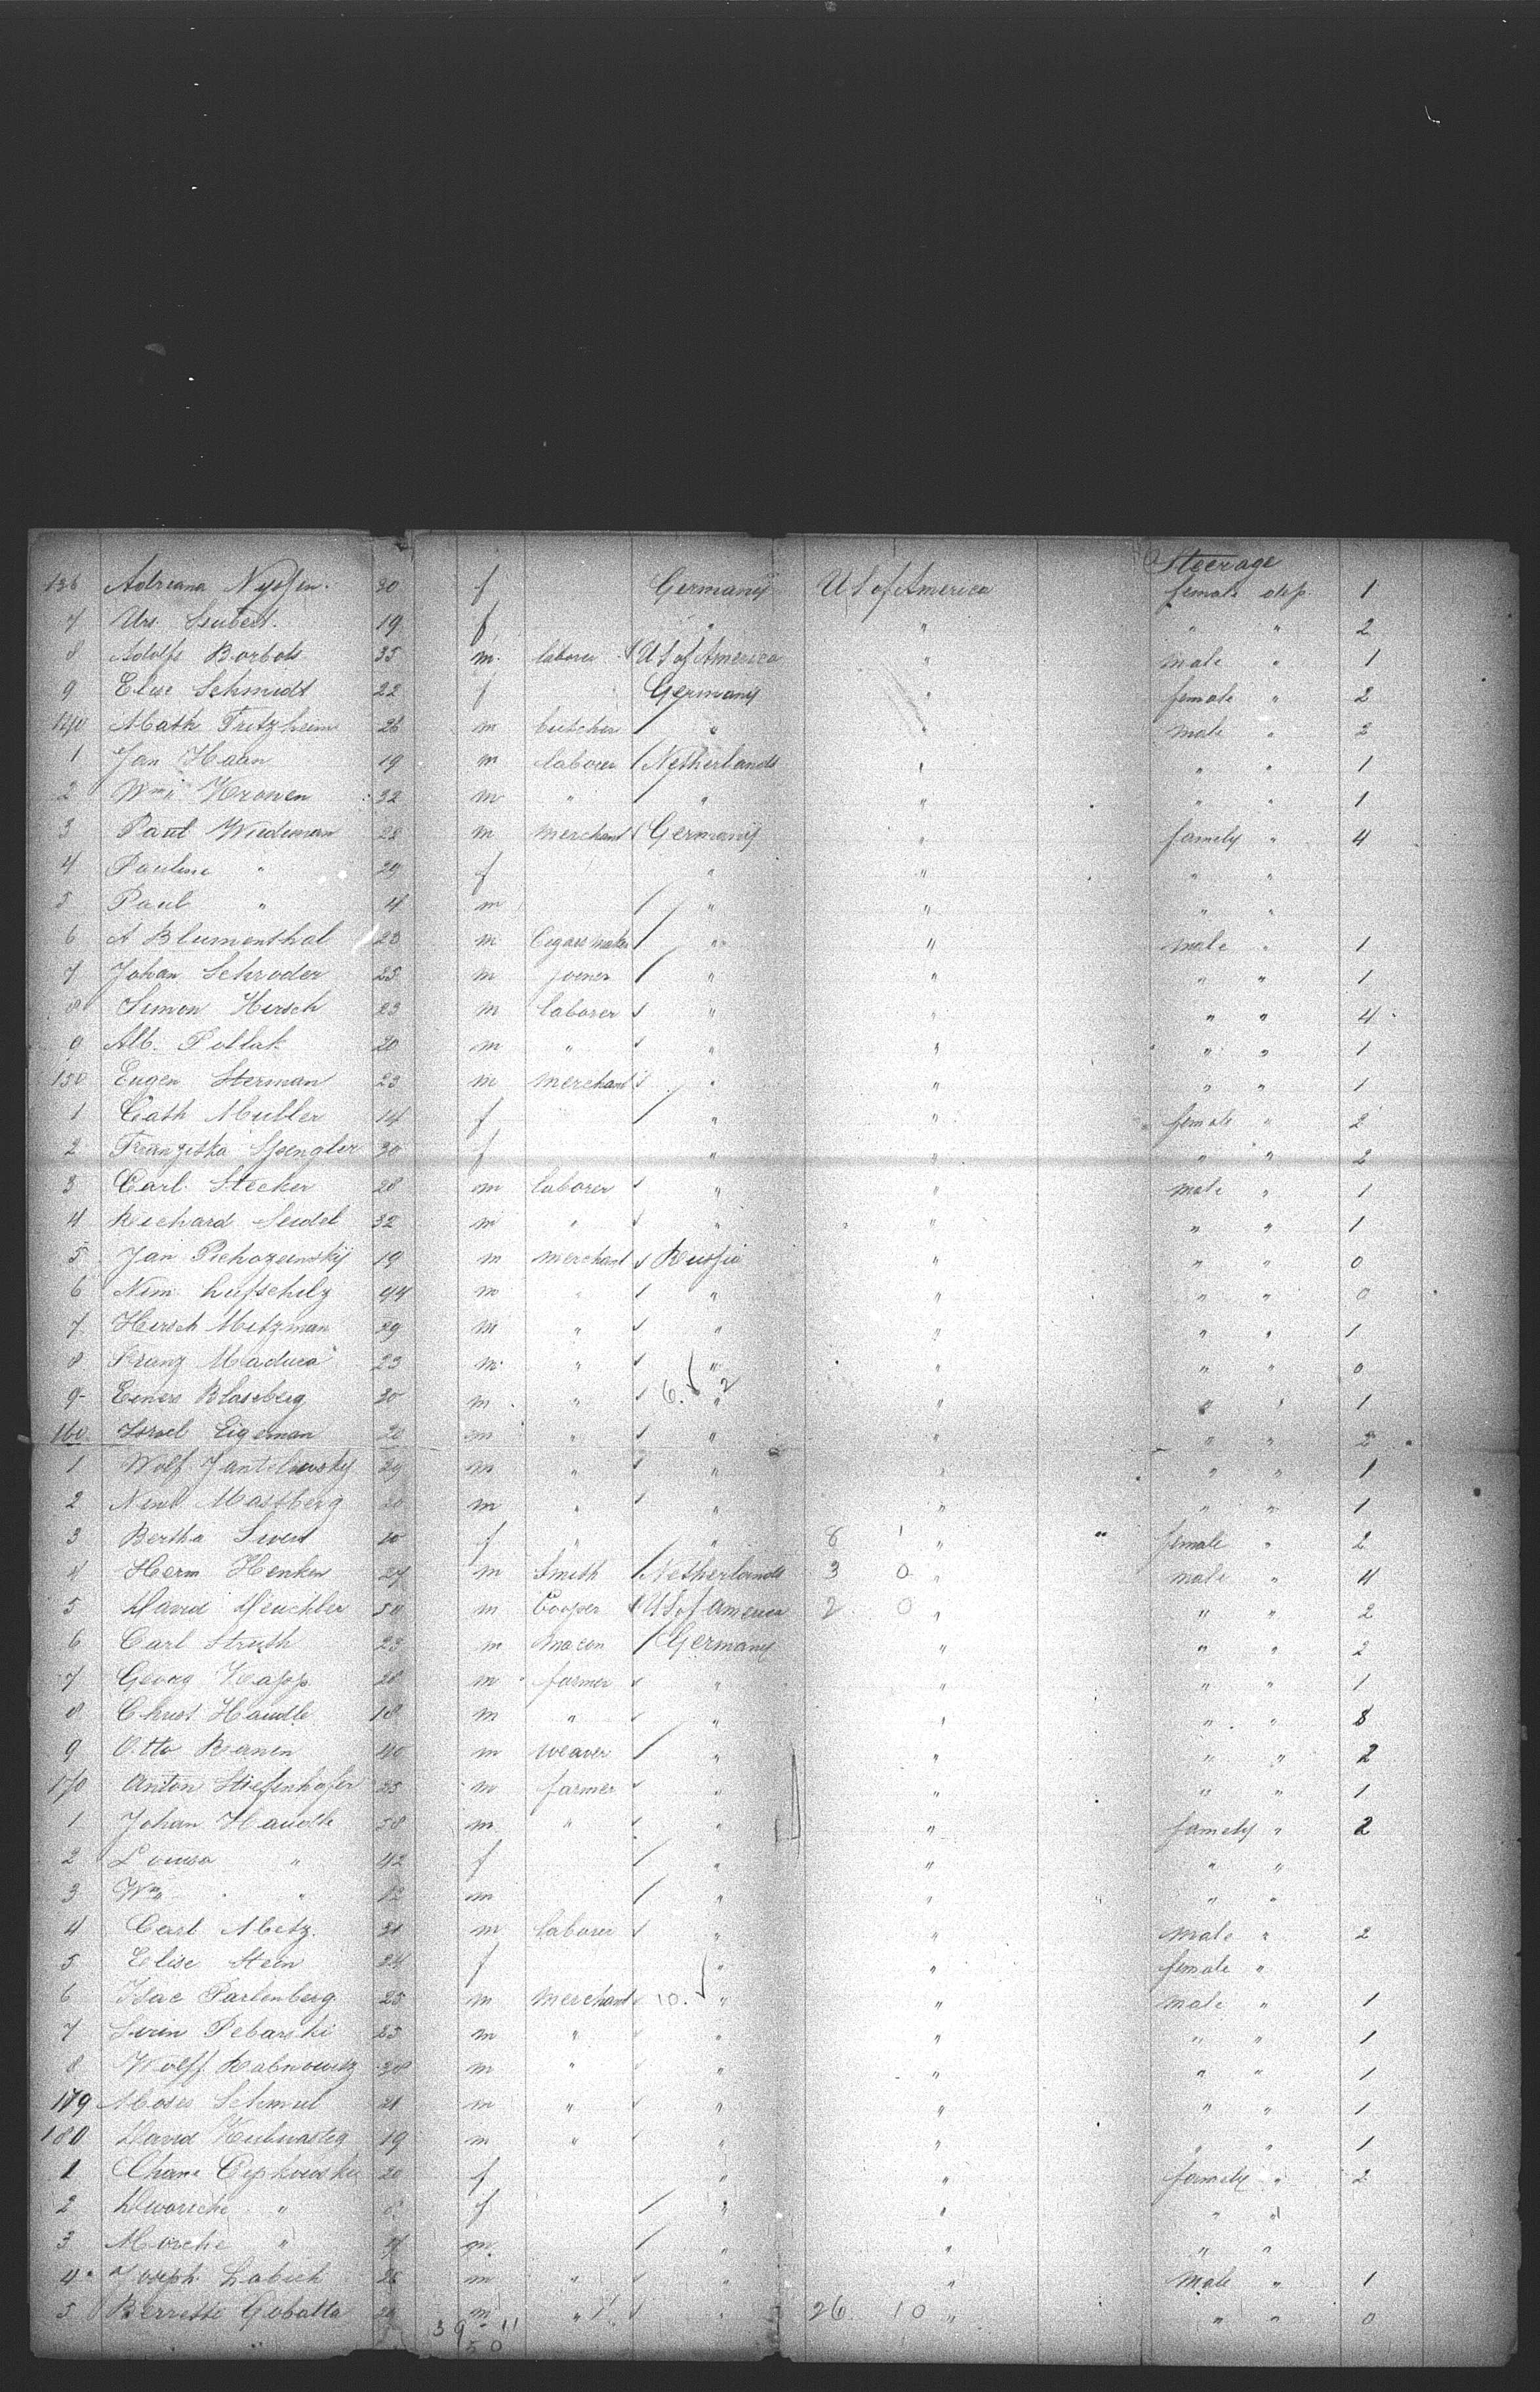 Steerage
136 Adriana Nyssen. 30 f Germany U S of America female dep. 1
7 Urs. Seubert. 19 f " " " " 2
8 Adolfs Borbols 35 m. laborer U S of America " male " 1
9 Elise Schmidt 22 f Germany " female " 2
140 Math Fritzheim 26 m butcher " " male " 2
1 Jan Haan 19 m laborer Netherlands " " " 1
2 Wm Kronen 32 m " " " " " 1
3 Paul Wiedeman 28 m merchant Germany " family " 4
4 Pauline " 29 f " " " "
5 Paul " 4 m " " " "
6 A Blumenthal 28 m Cigars maker " " male " 1
7 Johan Schroder 25 m joiner " " " " 1
8 Simon Hirsch 23 m laborer " " " " 4
9 Alb. Pollak 20 m " " " " " 1
150 Eugen Sterman 23 m merchant " " " " 1
1 Cath Muller 14 f " " female " 2
2 Franziska Spengler 30 f " " " " 2
3 Carl Stecker 28 m laborer " " male " 1
4 Richard Seidel 32 m " " " " " 1
5 Jan 19 m merchant Russia " " " 0
6 44 m " " " " " 0
7 Hirsch Metzman 29 m " " " " " 1
8 Franz Madura 23 m " " " " " 0
9 Blaseberg 30 m " 6. 2 " " " " 1
160 Israel Eigeman 20 m " " " " " 2
1 Wolf 29 m " " " " " 1
2 Mastberg 20 m " " " " " 1
3 Bertha f " " 8 1 " female " 2
4 Herm Henken 27 m Smith Netherlands 3 0 " male " 4
5 David 50 m Cooper U S of America 2 0 " " " 2
6 Carl Struth 23 m macon Germany " " " 2
7 Georg Kapp 28 m farmer " " " " 1
8 Christ Haudle 18 m " " " " " 8
9 Otto Bernin 40 m weaver " " " " 2
170 Anton Stiefenhofer 25 m farmer " " " " 1
1 Johan Haudle 58 m " " " family " 2
2 Louisa " 42 f " " " "
3 Wm " 12 m " " " "
4 Carl Metz. 21 m laborer " " male " 2
5 Elise Stein 24 f " " female "
6 Isac Parlenberg 25 m merchant 10. " " male " 1
7 25 m " " " " " 1
8 Wolff Rabnowitz 38 m " " " " " 1
179 Moses Schmul 21 m " " " " " 1
180 David 19 m " " " " " 1
1 Chane 20 f " " family " 2
2 " f " " " "
3 Morche " m " " " "
4 Joseph Labich 26 m " " " male " 1
5 Gobatta 29 m " " 26 10 " " " 0
39 11
50